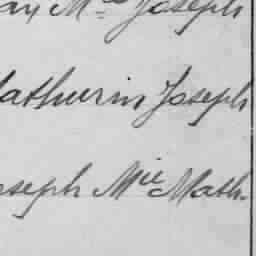 Joseph
athurin Joseph
oseph Mie Math.